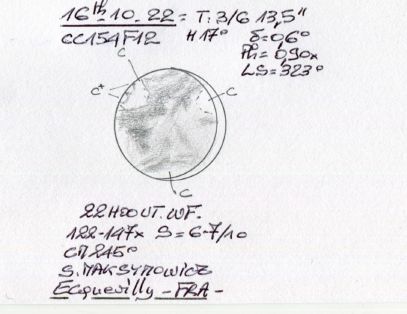 16th.10.22 = T: 3/6 13,5"
CC154F12 H17° δ=0,6°
Ph=0,90x
LS=323°
C
C+
C
C
22H00UT.WF.
122-147x S=6-7/10
CM245°
S.MAKSYMOWICZ
Ecquevilly -FRA-